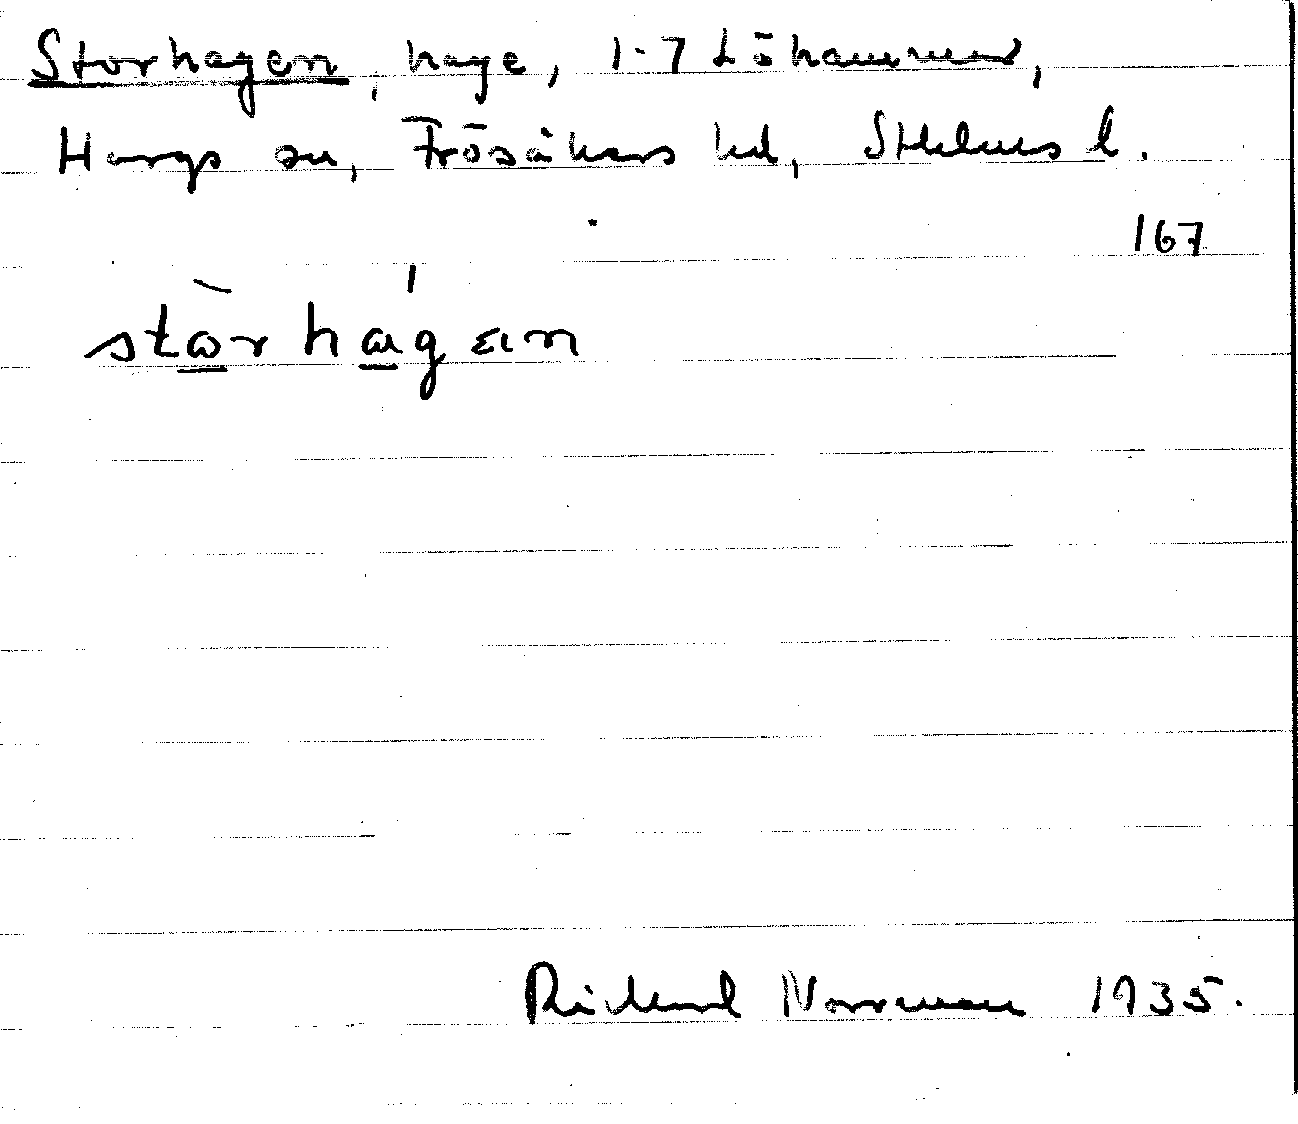 Storhagen, hage, 1-7 Löhammar,
Hargs sn, Frösåkers hd, Sthlms l.
167
stòrhágɛn
Rickard Norrman 1935.